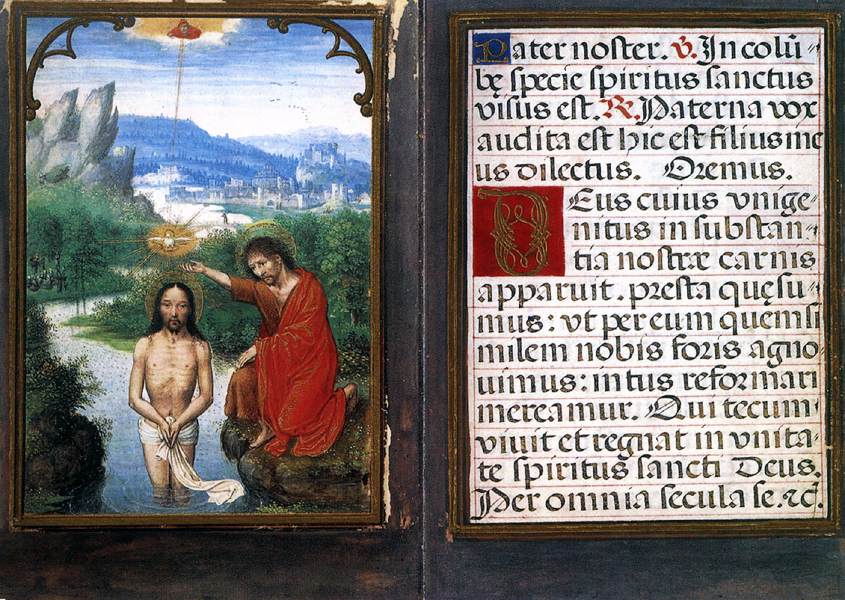 Pater noster. ℣. In colū
bę specie spiritus sanctus
visus est. ℟. Paterna vox
audita est hic est filius me
us dilectus. Oremus.
Deus cuius vnige-
nitus in substan-
tia nostræ carnis
apparuit. presta quęsu-
mus: vt per eum quem si
milem nobis foris agno
uimus: intus reformari
mereamur. Qui tecum
viuit et regnat in vnita-
te spiritus sancti Deus.
Per omnia secula se. ⁊c̄.